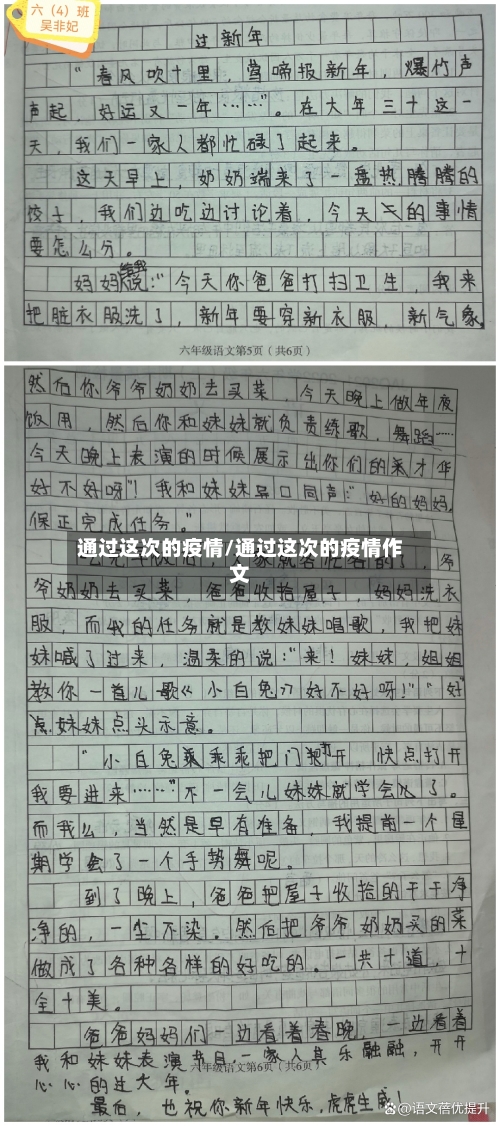 六（4）班
吴非妃
过新年
“春风吹十里，莺啼报新年，爆竹声
声起，好运又一年……”。在大年三十这一
天，我们一家人都忙碌了起来。
这天早上，奶奶端来了一盘热腾腾的
饺子，我们边吃边讨论着，今天的事情
要怎么分。
妈妈给我说：“今天你爸爸打扫卫生，我来
把脏衣服洗了，新年要穿新衣服，新气象。
六年级语文第5页（共6页）
然后你爷爷奶奶去买菜，今天晚上做年夜
饭用，然后你和妹妹就负责练歌，舞蹈……
今天晚上表演的时候展示出你们的才华
好不好呀”！我和妹妹异口同声：“好的妈妈，
保正完成任务。”
通过这次的疫情/通过这次的疫情作
文
爷奶奶去买菜，爸爸收拾屋子，妈妈洗衣
服，而我的任务就是教妹妹唱歌，我把妹
妹喊了过来，温柔的说：“来！妹妹，姐姐
教你一首儿歌《小白兔》好不好呀！”“好”
妹妹点头示意。
“小白兔乖乖把门打开，快点打开
我要进来……”不一会儿妹妹就学会了。
而我么，当然是早有准备，我提前一个星
期学会了一个手势舞呢。
到了晚上，爸爸把屋子收拾的干干净
净的，一尘不染。然后把爷爷奶奶买的菜
做成了各种各样的好吃的。一共十道，十
全十美。
爸爸妈妈们一边看着春晚，一边看着
我和妹妹表演节目，一家人其乐融融，开开
心心的过大年。
六年级语文第6页（共6页）
最后，也祝你新年快乐，虎虎生威！
@语文蓓优提升